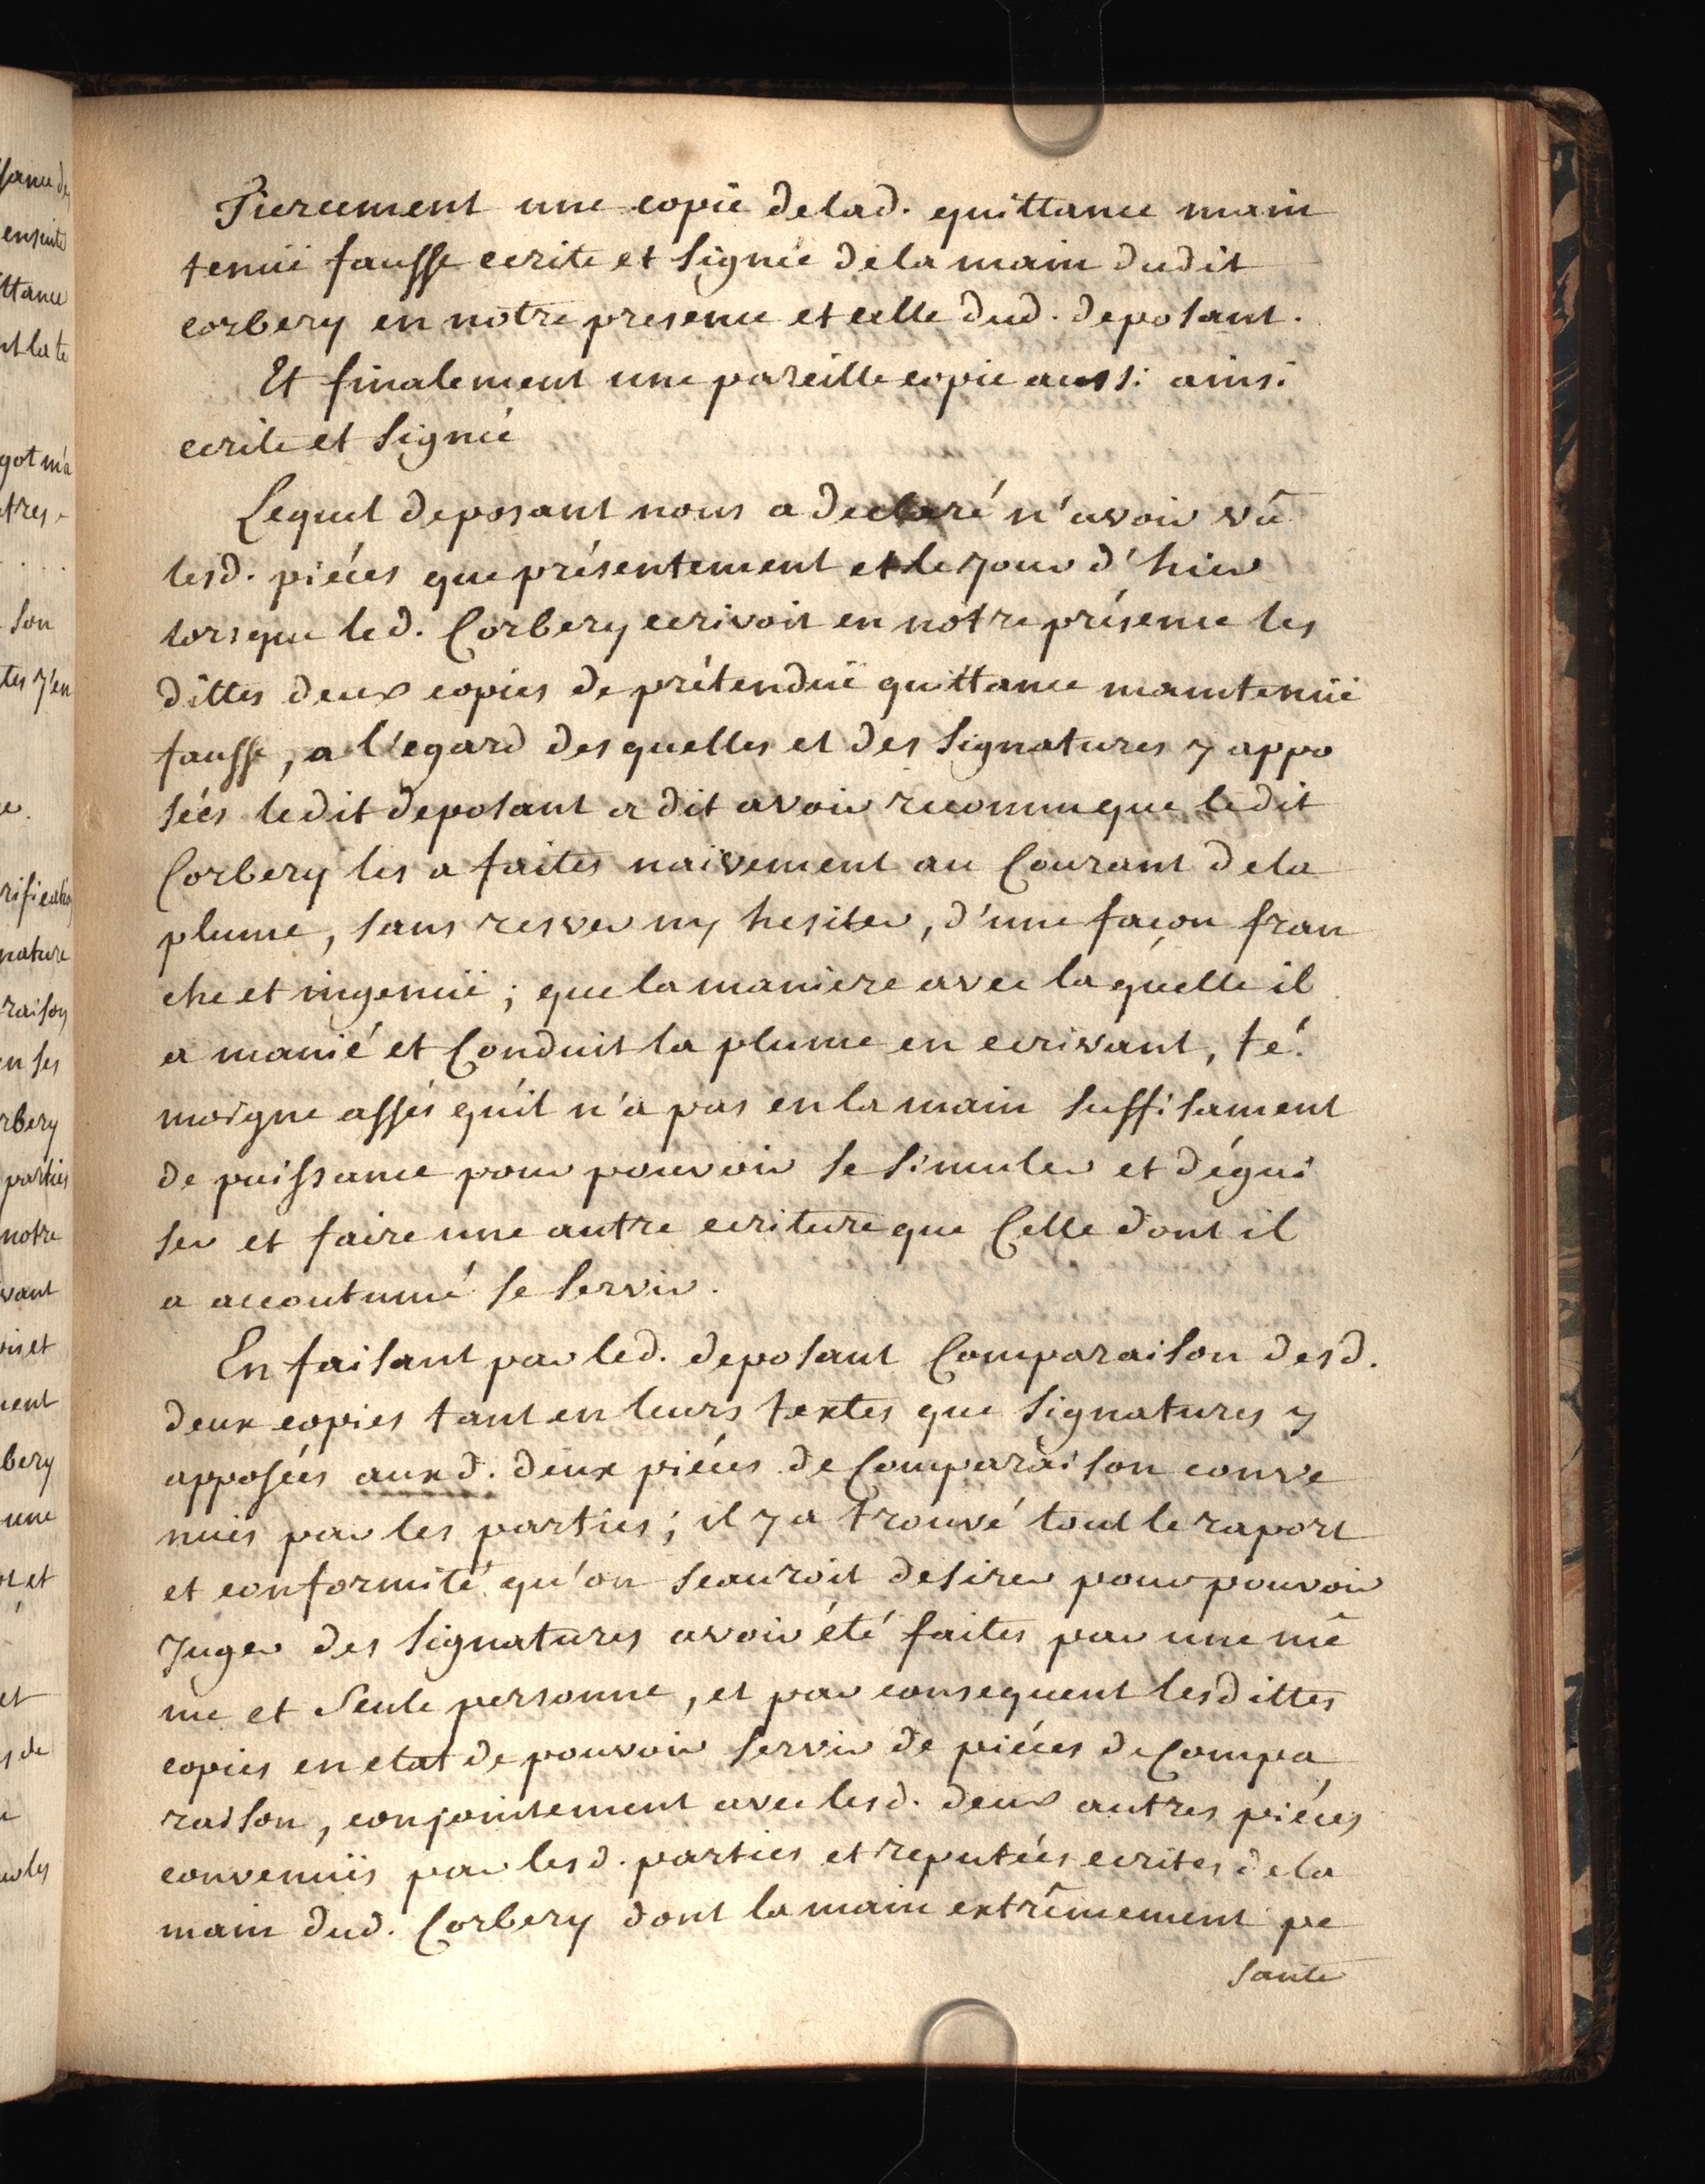 Tiercement une copie de lad. quittance main
tenüe fausse ecrite et signée de la main dudit
corbery en notre presence et celle dud. deposant.
Et finalement une pareille copie aussi ainsi
ecrite et signée
Lequel deposant nous a declaré n'avoir vû
lesd. piéces que présentement et le jour d'hier
lorsque led. Corbery ecrivoit en notre présence les
dittes deux copies de prétenduë quittance maintenüe
fausse, a l'egard desquelles et des signatures y appo
sées ledit deposant a dit avoir reconnu que ledit
Corbery les a faites naivement au Courant de la
plume, sans resver ny hesiter, d'une façon fran
che et ingenuë ; que la maniere avec laquelle il
a manié et Conduit la plume en ecrivant, té
moigne assés qu'il n'a pas en la main suffisament
de puissance pour pouvoir se simuler et dégui
ser et faire une autre ecriture que Celle dont il
a accoutumé se servir.
En faisant par led. deposant Comparaison desd.
deux copies tant en leurs textes que signatures y
apposées auxd. deux piéces de Comparaison conve
nues par les parties ; il y a trouvé tout le raport
et conformité qu'on scauroit desirer pour pouvoir
Juger des signatures avoir été faites par une mê
me et seule personne, et par consequent lesdittes
copies en etat de pouvoir servir de piéces de Compa
raison, conjointement avec lesd. deux autres piéces
convenuës par lesd. parties et reputées ecrites de la
main dud. Corbery dont la main extrêmement pe
sante